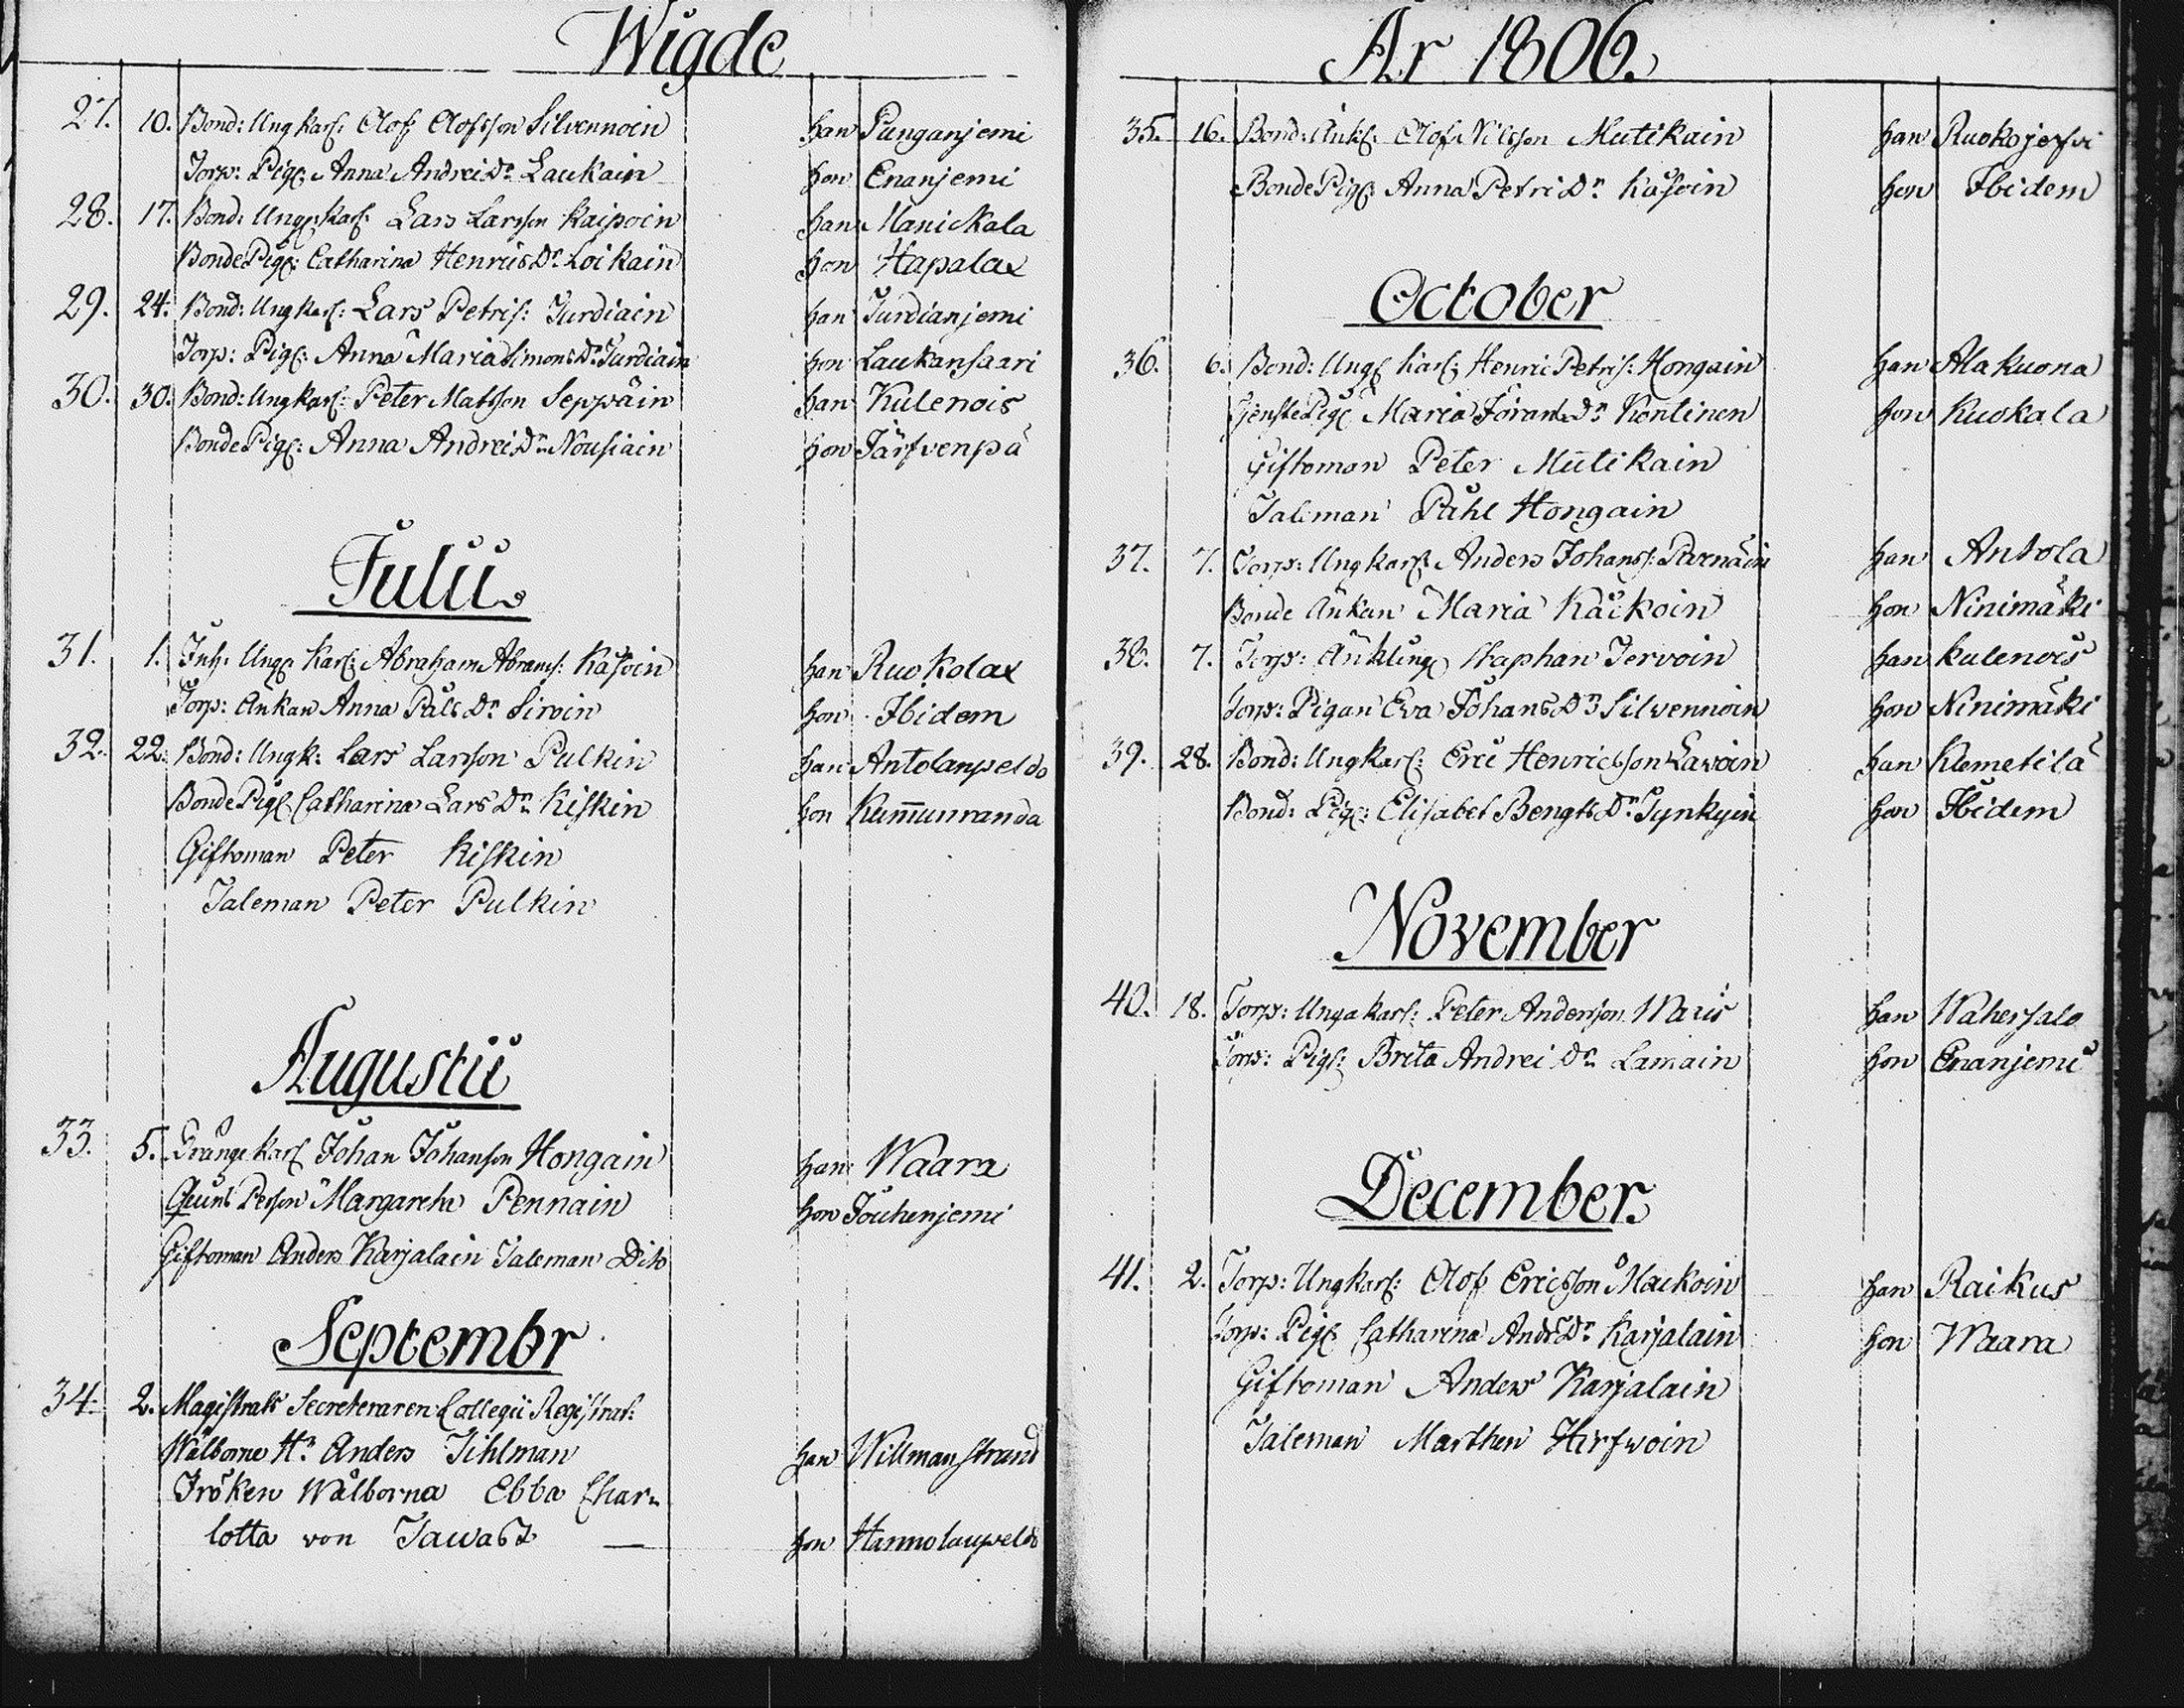 Wigde
27. 10. Bond: Ung Karl: Olof Olofsson Silvennoin han Punganjemi
Torp: Pig: Anna Andrei Dr Laukain hon Enanjemi
28. 17. Bond: Ung: Karl: Lars Larsson Kaipoin han Manickala
Bonde Pig: Catharina Henrics Dr Loikain hon Hapalax
29. 24. Bond: Ung Karl: Lars Petris: Turdiain han Turdianjemi
Torp: Pig: Anna Maria Simons Dr Turdiain hon Laukansaari
30. 30. Bond: Ung Karl: Peter Matsson Seppäin han Kulenois
Bonde Pig: Anna Andrei Dr Nousiain hon Järfvenpä
Julii
31. 1. Inh: Ung: Karl: Abraham Abrams: Käsoin han Ruokolax
Torp: Änkan Anna Påls Dr Siroin hon Ibidem
32. 22. Bond: Ungk: Lars Larsson Pulkin han Antolanpeldo
Bonde Pig: Catharina Lars Dr Kiskin hon Kum̅unranda
Giftoman Peter Kiskin
Taleman Peter Pulkin
Augustii
33. 5. Dränge Karl Johan Johanson Hongain han Waara
Person Margareta Pennain hon Jouhenjemi
Giftoman Anders Karjalain Taleman Dito
Septembr
34. 2. Magistrats Secreteraren Collegii Registrat:
Wälborne Hr Anders Tihlman han Willmanstrand
Fröken Wälborna Ebba Char-
lotta von Tawast — hon Hannolanpeldo
År 1806.
35. 16. Bond: Änkl: Olof Nilsson Mutikain han Ruokojerfvi
Bonde Pig: Anna Petri Dr Käsoin hon Ibidem
October
36. 6. Bond: Ung Karl: Henric Petris: Hongain han Alakuona
Tjenste Pig: Maria Dr Kontinen hon Kuokala
Giftoman Peter Mutikain
Taleman Påhl Hongain
37. 7. Torp: Ung Karl Anders Johans: Parnäin han Antola
Bonde Änkan Maria Käckoin hon Ninimäki
38. 7. Torp: Änkling Staphan Tervoin han Kulenois
Torp: Pigan Eva Johans Dr Silvennoin hon Ninimäki
39. 28. Bond: Ung Karl: Eric Henricsson Lawoin han Klemetilä
Bond: Pig: Elisabet Bengts Dr Tynkyin hon Ibidem
November
40. 18. Torp: Unga Karl: Peter Andersson Waris han Wahersalo
Torp: Pig: Brita Andrei Dr Lamain hon Enanjemi
December
41. 2. Torp: Ung Karl: Olof Ericsson Mackoin han Raikus
Torp: Pig: Catharina Andr: Dr Karjalain hon Waara
Giftoman Anders Karjalain
Taleman Marthen Hirfwoin